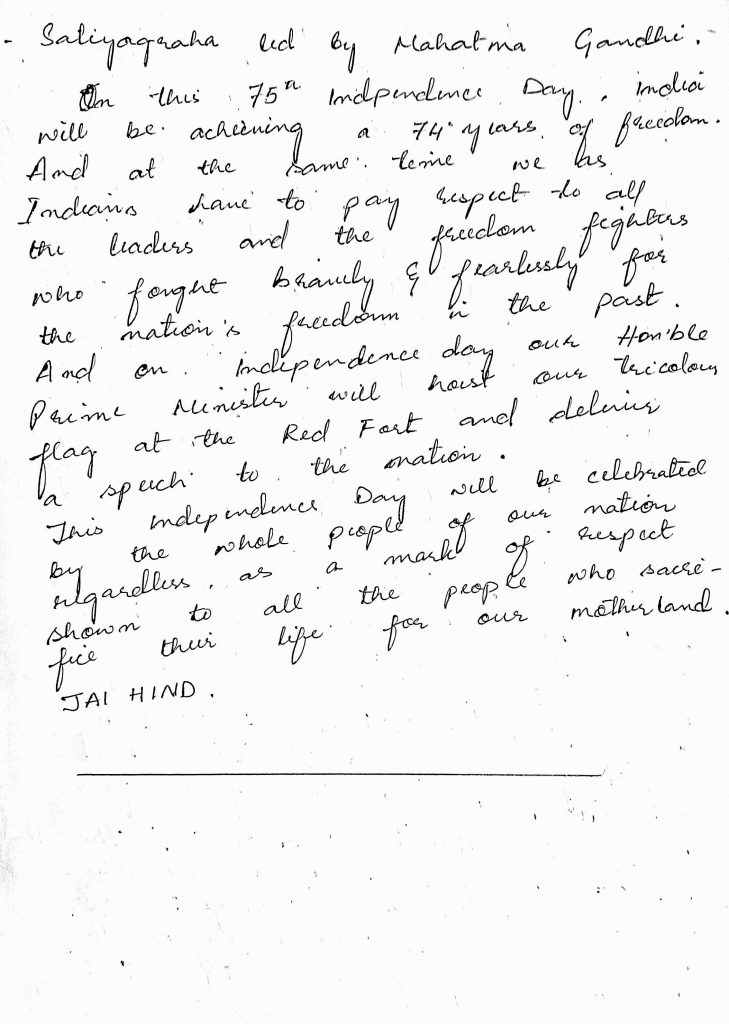 - Satiyagraha led by Mahatma Gandhi.
On this 75th Independence Day, India
will be achieving a 74 years of freedom.
And at the same time we as
Indians have to pay respect to all
the leaders and the freedom fighters
who fought bravely & fearlessly for
the nation's freedom in the past.
And on Independence day our Hon'ble
Prime Minister will hoist our tricolour
flag at the Red Fort and deliver
a speech to the nation.
This independence Day will be celebrated
by the whole people of our nation
regardless, as a mark of respect
shown to all the people who sacri-
fice their life for our motherland.
JAI HIND.